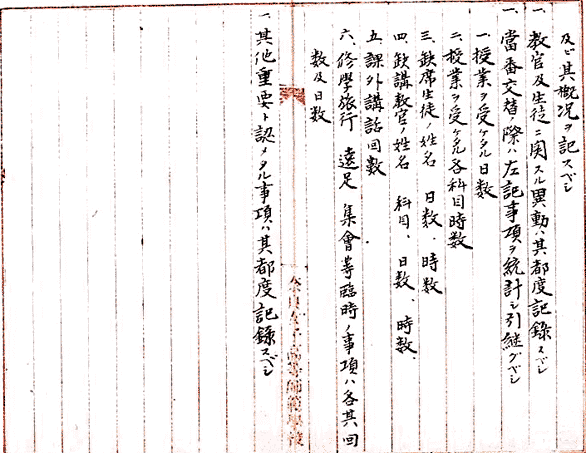 及ビ其概況ヲ記スベシ
一、教官及生徒ニ関スル異動ハ其都度記録スベシ
一、當番交替ノ際ハ左記事項ヲ統計シ引継グベシ
一、授業ヲ受ケタル日数
二、授業ヲ受ケタル各科目時数
三、欠席生徒ノ姓名 日数、時数
四、欠講教官ノ姓名 科目、日数、時数
五、課外講話回数
六、修學旅行 遠足 集會等臨時ノ事項ハ各其回
数及日数
奈良女子高等師範學校
一、其他重要ト認メタル事項ハ其都度記録スベシ